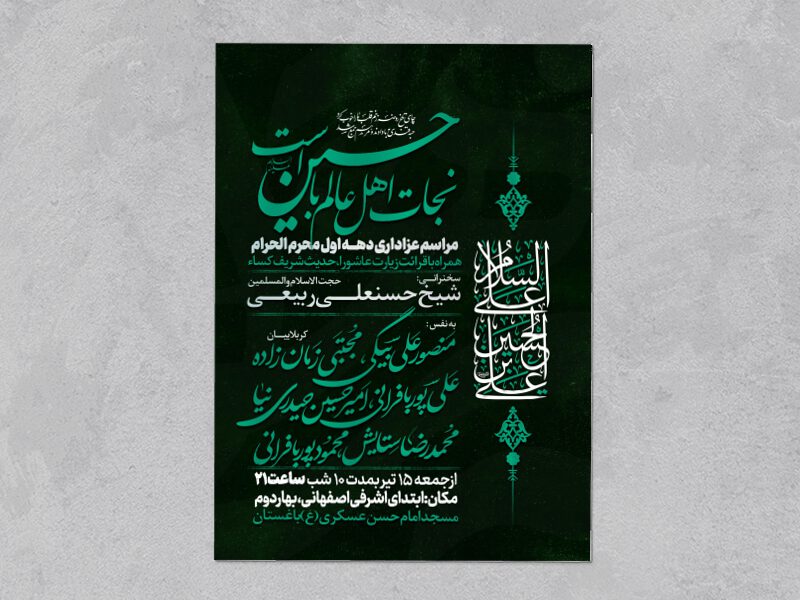 نجات اهل عالم با حسین است
مراسم عزاداری دهه اول محرم الحرام
همراه با قرائت زیارت عاشورا، حدیث شریف کساء
سخنرانی:
حجت الاسلام والمسلمین
شیخ حسنعلی ربیعی
به نفس:
کربلاییان
منصور علی بیگی مجتبی زمان زاده
علی پوربافرانی امیرحسین حیدری نیا
محمدرضا ستایش محمود پوربافرانی
از جمعه ۱۵ تیر بمدت ۱۰ شب ساعت ۲۱
مکان: ابتدای اشرفی اصفهانی، بهار دوم
مسجد امام حسن عسکری (ع) باغستان
السلام
علی
الحسین